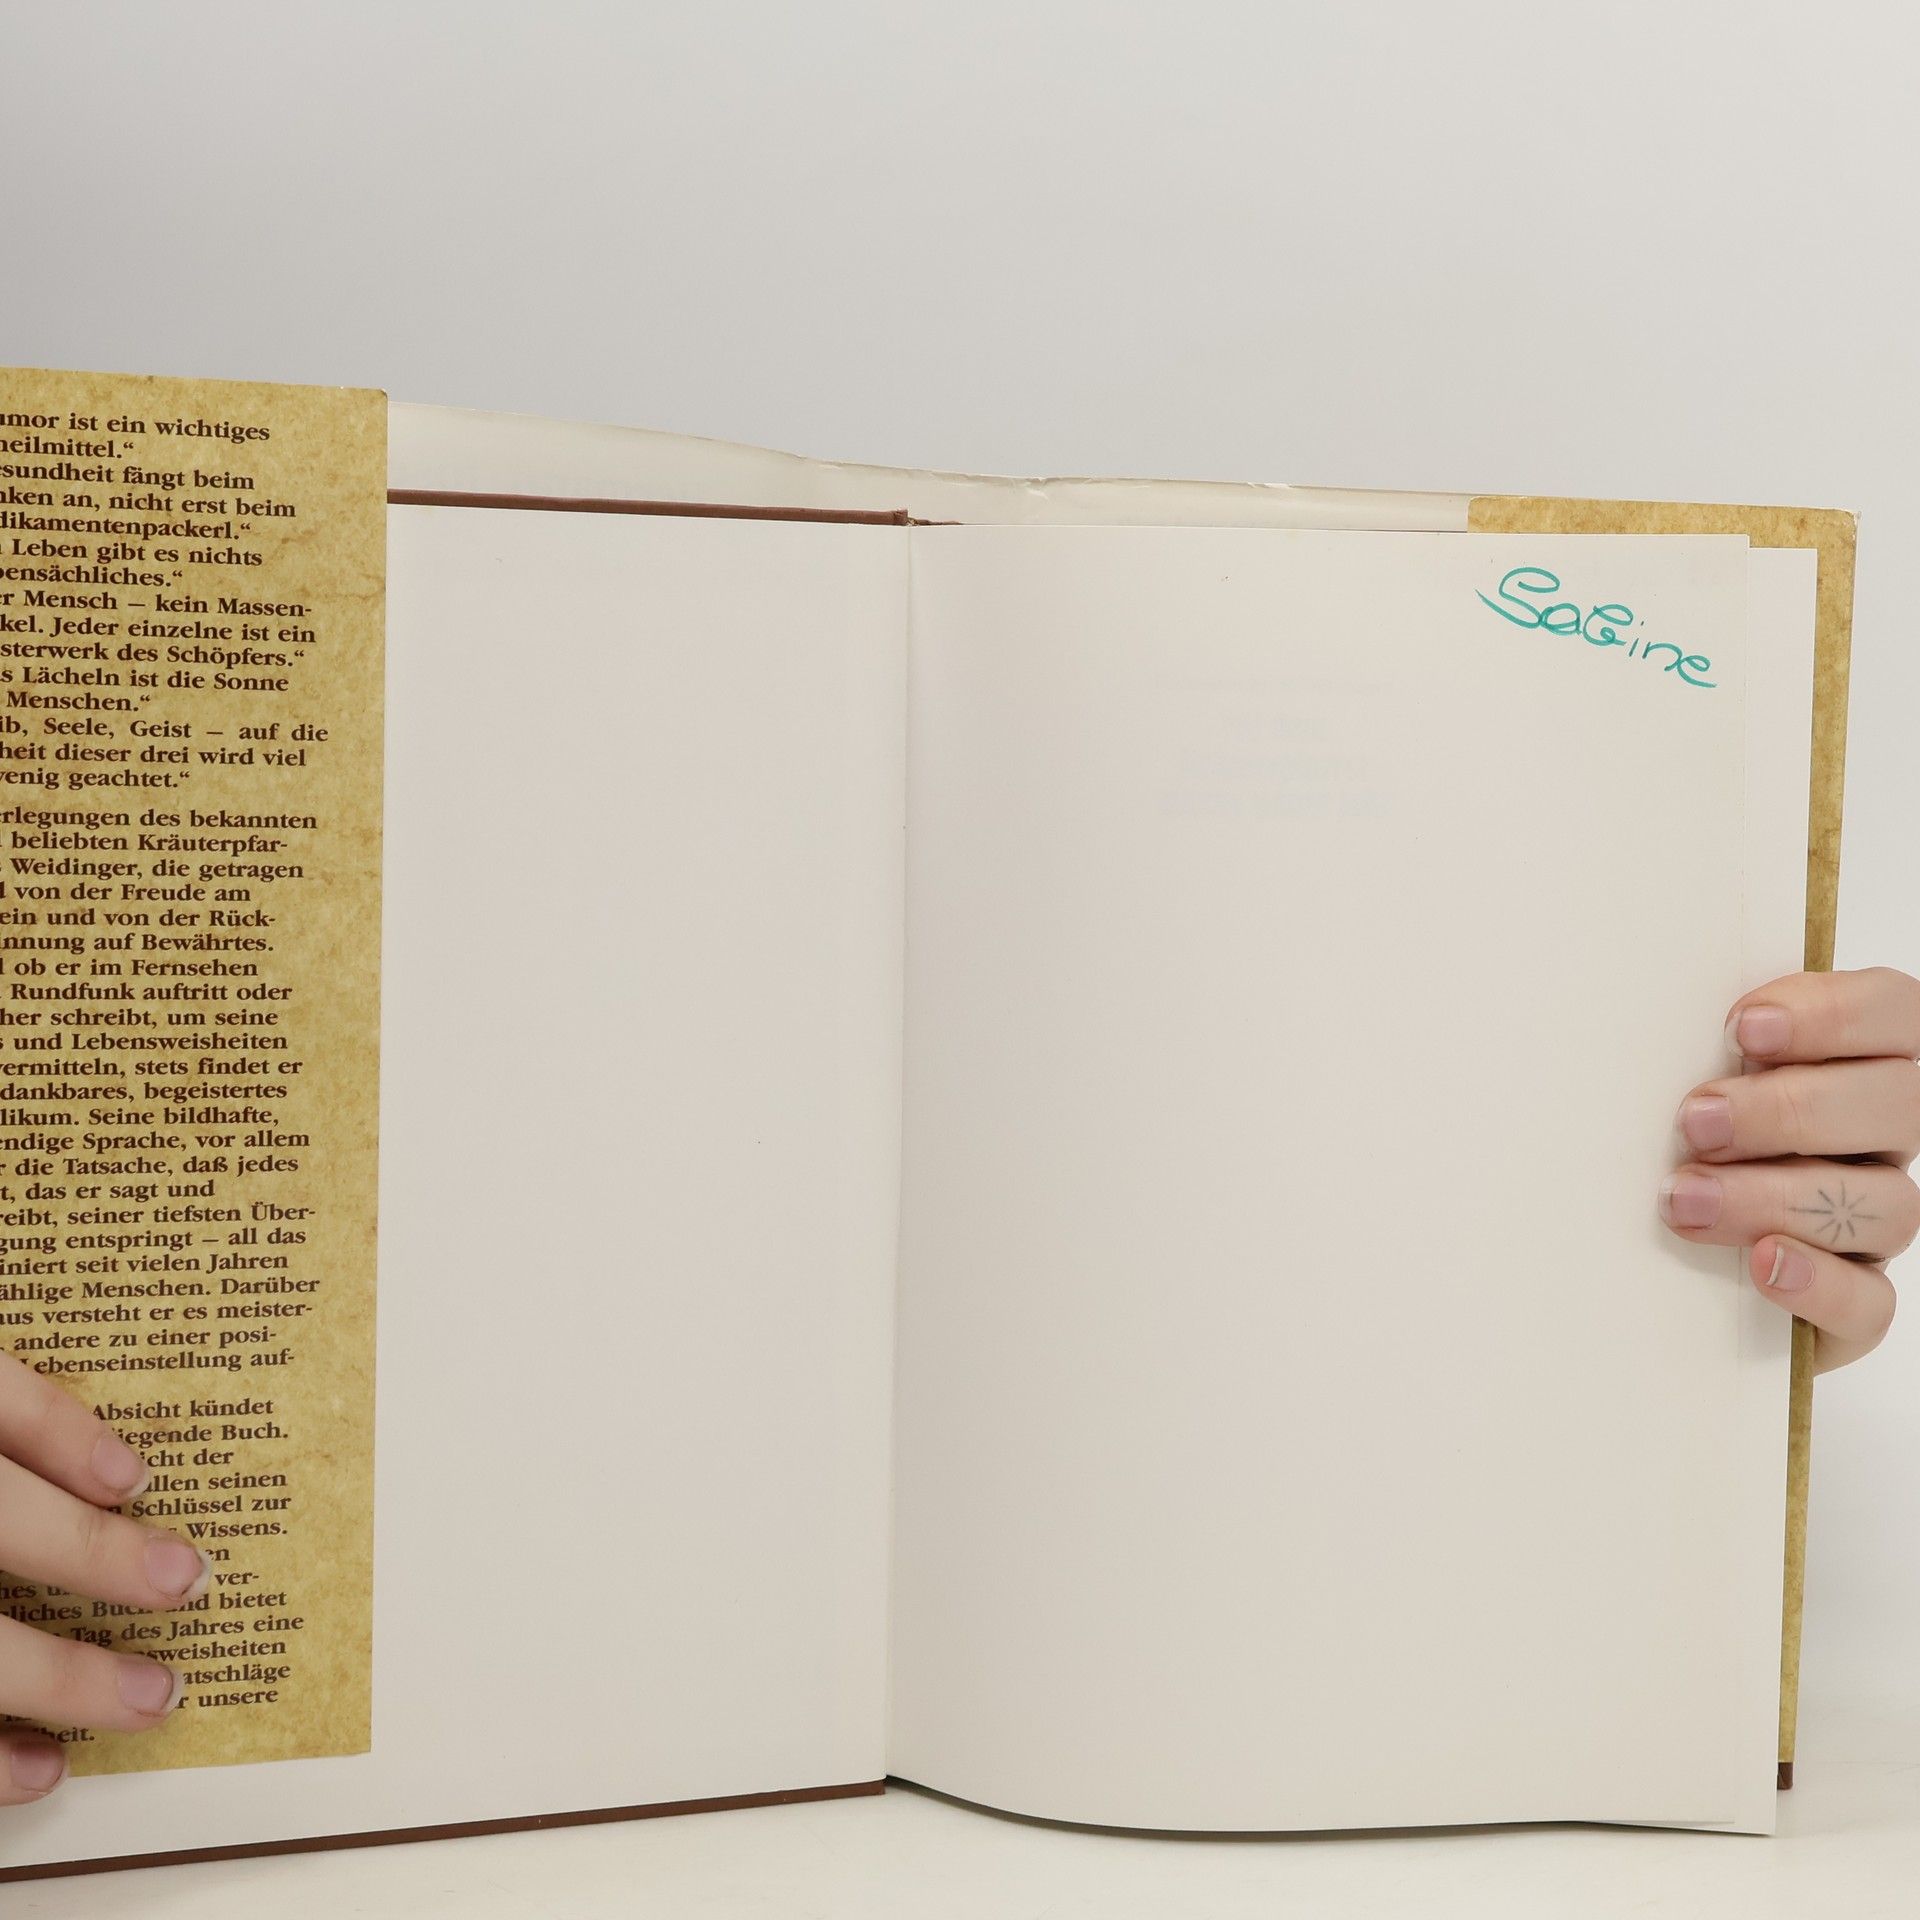 umor ist ein wichtiges
heilmittel.“
esundheit fängt beim
nken an, nicht erst beim
dikamentenpackerl.“
Leben gibt es nichts
bensächliches.“
er Mensch – kein Massen-
kel. Jeder einzelne ist ein
sterwerk des Schöpfers.“
s Lächeln ist die Sonne
Menschen.“
ib, Seele, Geist – auf die
heit dieser drei wird viel
wenig geachtet.“
erlegungen des bekannten
beliebten Kräuterpfar-
Weidinger, die getragen
von der Freude am
ein und von der Rück-
innung auf Bewährtes.
ob er im Fernsehen
Rundfunk auftritt oder
her schreibt, um seine
s und Lebensweisheiten
vermitteln, stets findet er
dankbares, begeistertes
likum. Seine bildhafte,
endige Sprache, vor allem
r die Tatsache, daß jedes
t, das er sagt und
reibt, seiner tiefsten Über-
gung entspringt – all das
iniert seit vielen Jahren
ählige Menschen. Darüber
aus versteht er es meister-
, andere zu einer posi-
Lebenseinstellung auf-
Absicht kündet
liegende Buch.
icht der
allen seinen
n Schlüssel zur
s Wissens.
en
ver-
liches Buch und bietet
Tag des Jahres eine
sweisheiten
atschläge
r unsere
heit.
Sabine